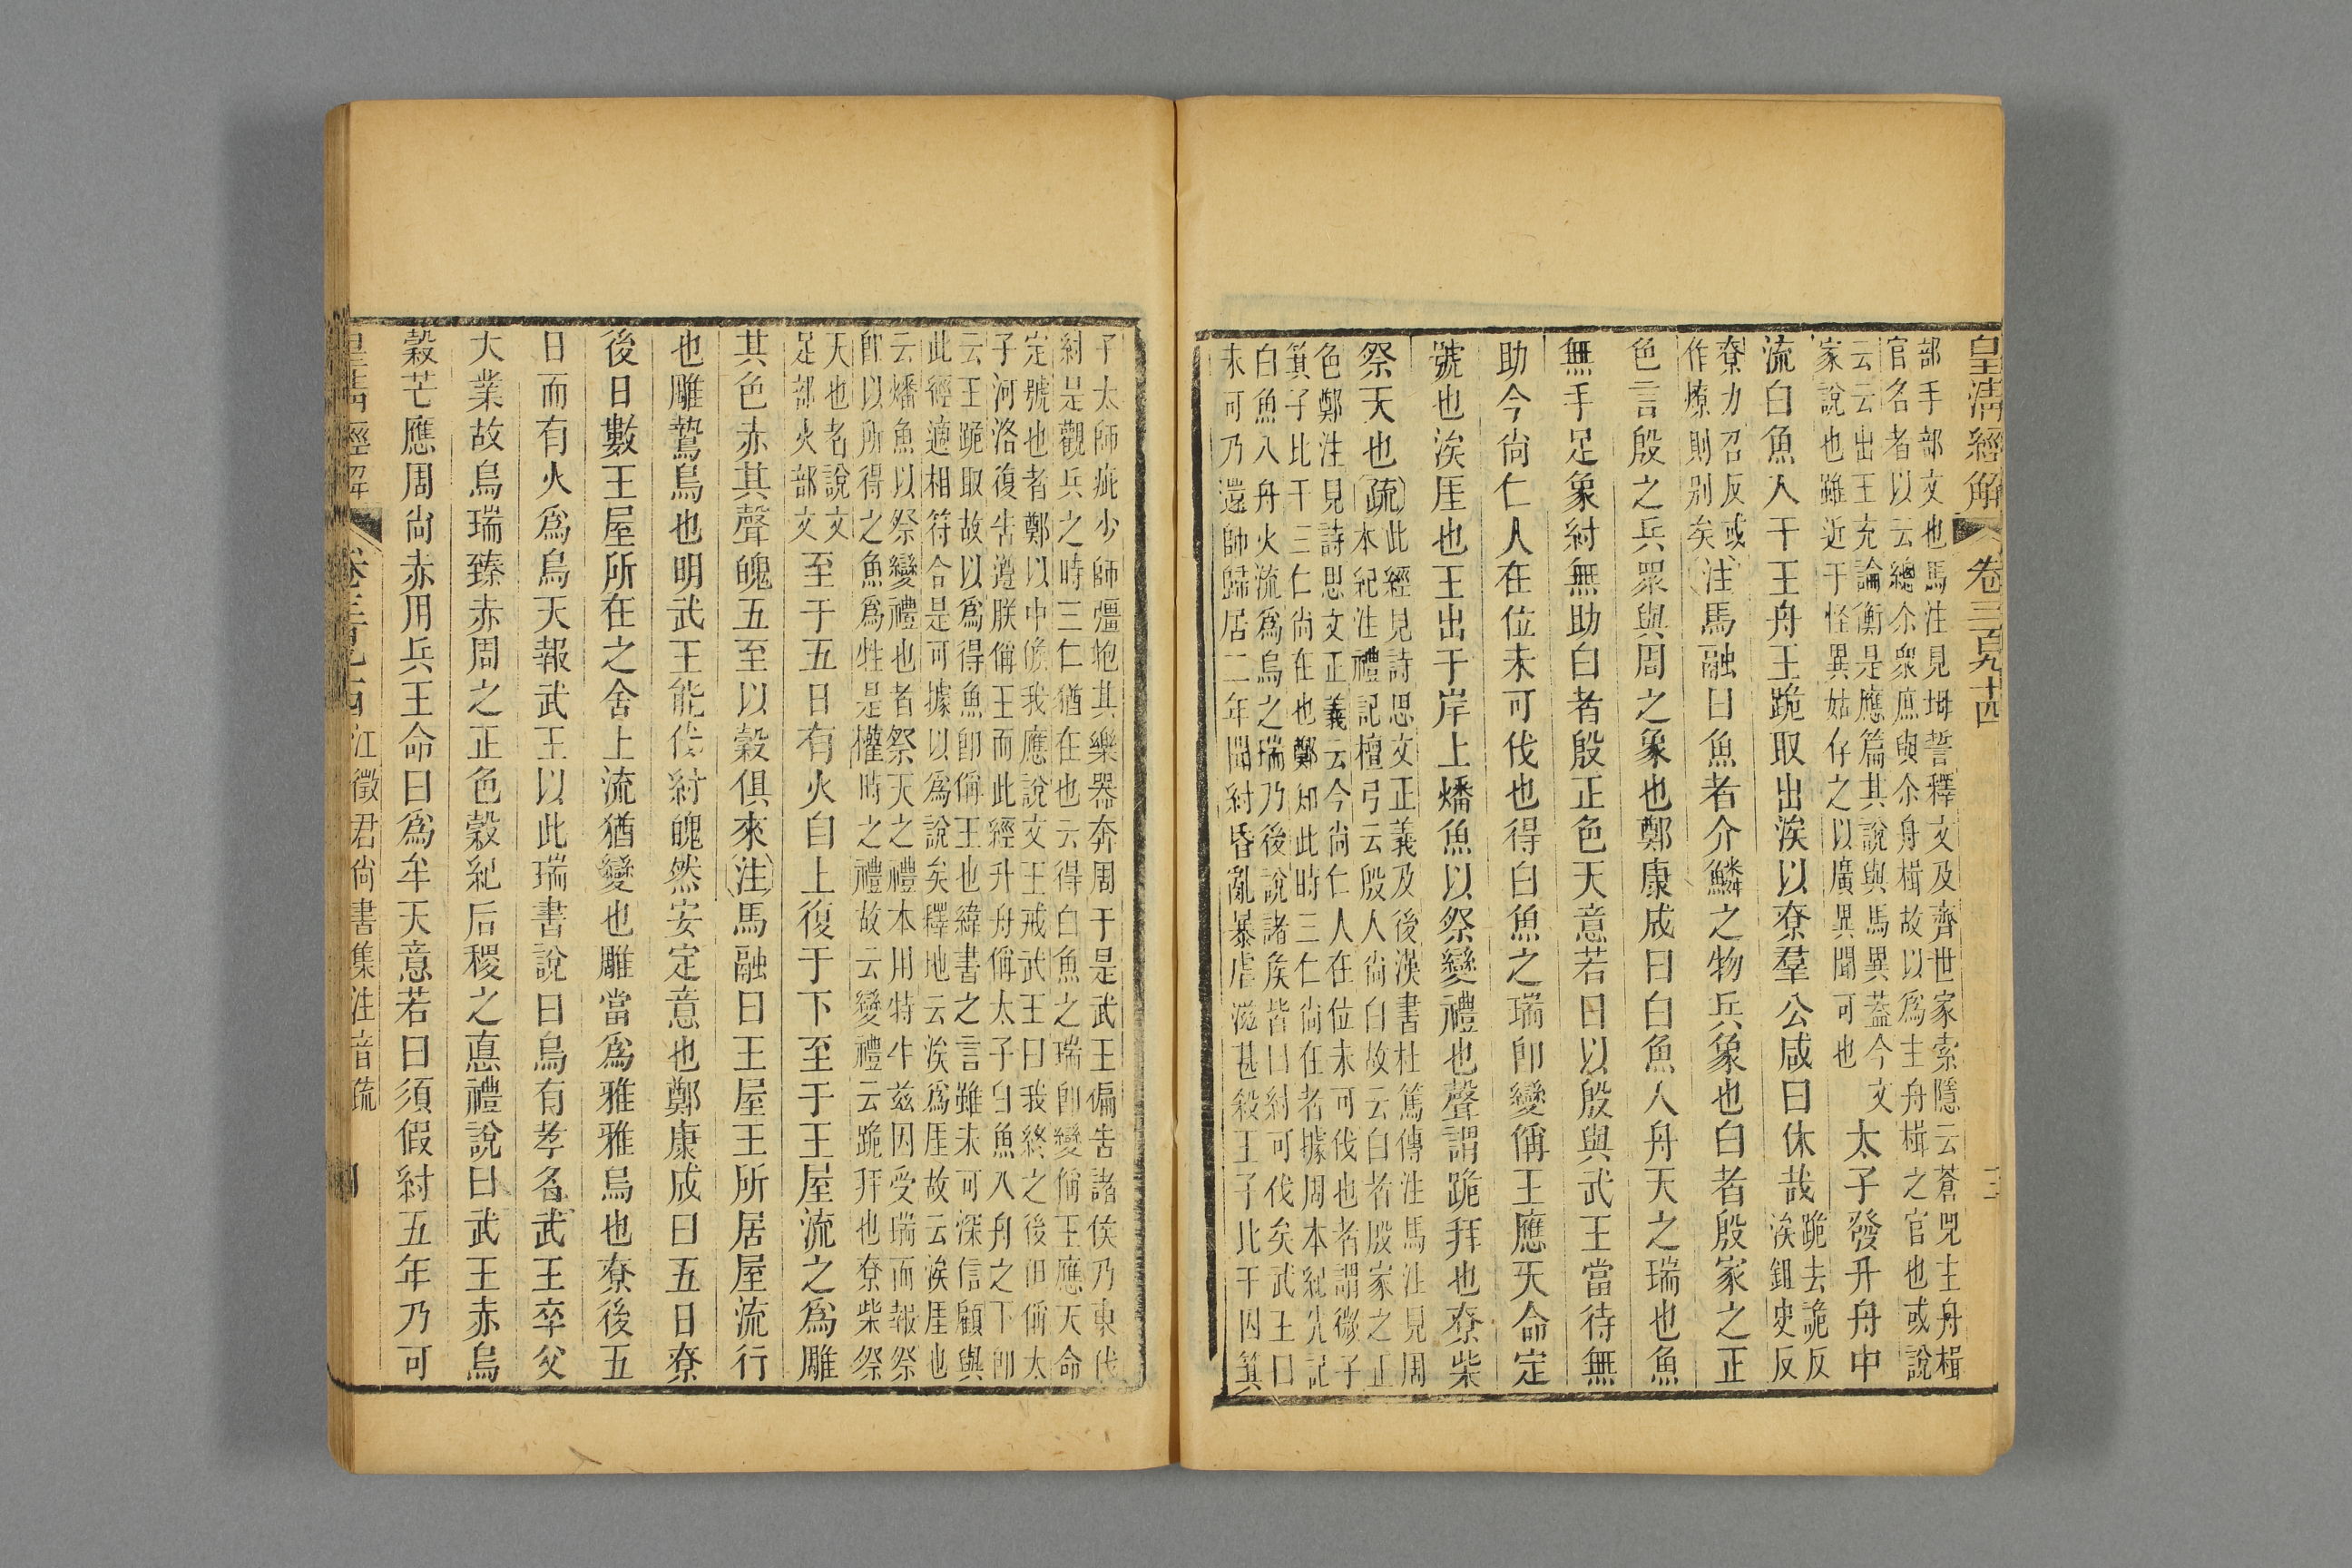 皇清經解 卷三百九十四
部手部文也馬注見坶誓釋文及齊世家索隱云蒼兕主舟楫
官名者以云總尒衆庶與尒舟楫故以爲主舟楫之官也或說
云云出王充論衡是應篇其說與馬異葢今文
家說也雖近于怪異姑存之以廣異聞可也
太子發升舟中
流白魚入于王舟王跪取出涘以尞羣公咸曰休哉
跪去詭反
涘鉏史反
尞力召反或
作燎則别矣
注馬融曰魚者介鱗之物兵象也白者殷家之正
色言殷之兵眾與周之象也鄭康成曰白魚入舟天之瑞也魚
無手足象紂無助白者殷正色天意若曰以殷與武王當待無
助今尚仁人在位未可伐也得白魚之瑞即變偁王應天命定
號也涘厓也王出于岸上燔魚以祭變禮也聲謂跪拜也尞柴
祭天也
疏
此經見詩思文正義及後漢書杜篤傳注馬注見周
本紀注禮記檀弓云殷人尚白故云白者殷家之正
色鄭注見詩思文正義云今尚仁人在位未可伐也者謂微子
箕子比干三仁尚在也鄭知此時三仁尚在者據周本紀先記
白魚入舟火流爲烏之瑞乃後說諸矦皆曰紂可伐矣武王曰
未可乃還師歸居二年聞紂昏亂暴虐滋甚殺王子比干囚箕
子太師疵少師彊抱其樂器奔周于是武王徧告諸矦乃東伐
紂是觀兵之時三仁猶在也云得白魚之瑞即變偁王應天命
定號也者鄭以中候我應說文王戒武王曰我終之後恒偁太
子河洛復告遵朕偁王而此經升舟偁太子白魚入舟之下即
云王跪取故以爲得魚即偁王也緯書之言雖未可深信顧與
此經適相符合是可據以爲說矣釋地云涘爲厓故云涘厓也
云燔魚以祭變禮也者祭天之禮本用特牛兹因受瑞而報祭
即以所得之魚爲牲是權時之禮故云變禮云跪拜也尞柴祭
天也者說文
足部火部文
至于五日有火自上復于下至于王屋流之爲雕
其色赤其聲魄五至以穀俱來
注
馬融曰王屋王所居屋流行
也雕鷙鳥也明武王能伐紂魄然安定意也鄭康成曰五日尞
後日數王屋所在之舍上流猶變也雕當爲雅雅烏也尞後五
日而有火爲烏天報武王以此瑞書說曰烏有孝名武王卒父
大業故烏瑞臻赤周之正色穀紀后稷之悳禮說曰武王赤烏
穀芒應周尚赤用兵王命曰爲牟天意若曰須假紂五年乃可
皇清經解 卷三百九十四 江徵君尚書集注音疏